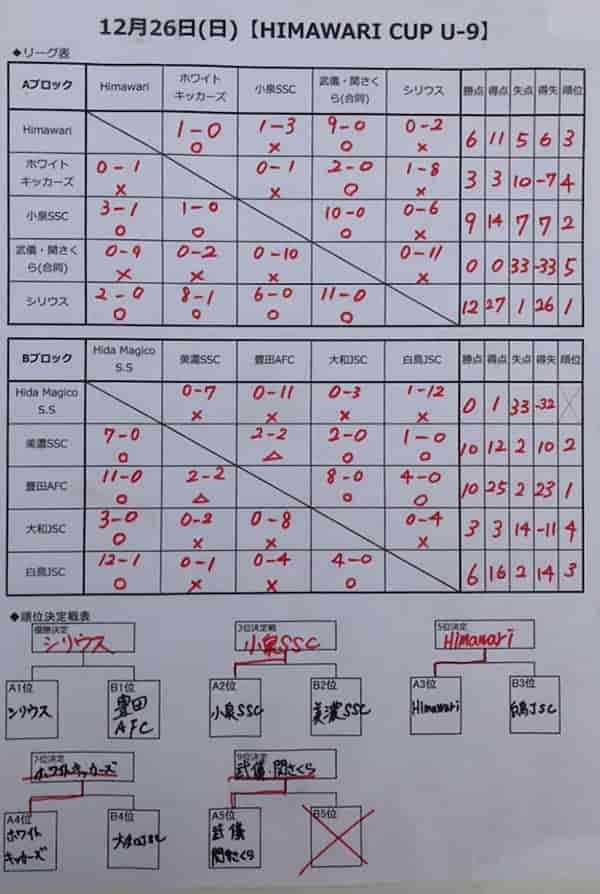 12月26日(日)【HIMAWARI CUP U-9】
◆リーグ表
Aブロック Himawari ホワイトキッカーズ 小泉SSC 武儀・関さくら(合同) シリウス 勝点 得点 失点 得失 順位
Himawari 1-0 ○ 1-3 × 9-0 ○ 0-2 × 6 11 5 6 3
ホワイトキッカーズ 0-1 × 0-1 × 2-0 ○ 1-8 × 3 3 10 -7 4
小泉SSC 3-1 ○ 1-0 ○ 10-0 ○ 0-6 × 9 14 7 7 2
武儀・関さくら(合同) 0-9 × 0-2 × 0-10 × 0-11 × 0 0 33 -33 5
シリウス 2-0 ○ 8-1 ○ 6-0 ○ 11-0 ○ 12 27 1 26 1
Bブロック Hida Magico S.S 美濃SSC 豊田AFC 大和JSC 白鳥JSC 勝点 得点 失点 得失 順位
Hida Magico S.S 0-7 × 0-11 × 0-3 × 1-12 × 0 1 33 -32
美濃SSC 7-0 ○ 2-2 △ 2-0 ○ 1-0 ○ 10 12 2 10 2
豊田AFC 11-0 ○ 2-2 △ 8-0 ○ 4-0 ○ 10 25 2 23 1
大和JSC 3-0 ○ 0-2 × 0-8 × 0-4 × 3 3 14 -11 4
白鳥JSC 12-1 ○ 0-1 × 0-4 × 4-0 ○ 6 16 2 14 3
◆順位決定戦表
優勝決定 3位決定戦 5位決定
シリウス 小泉SSC Himawari
A1位 B1位 A2位 B2位 A3位 B3位
シリウス 豊田AFC 小泉SSC 美濃SSC Himawari 白鳥JSC
7位決定 9位決定
ホワイトキッカーズ 武儀・関さくら
A4位 B4位 A5位 B5位
ホワイトキッカーズ 大和JSC 武儀関さくら